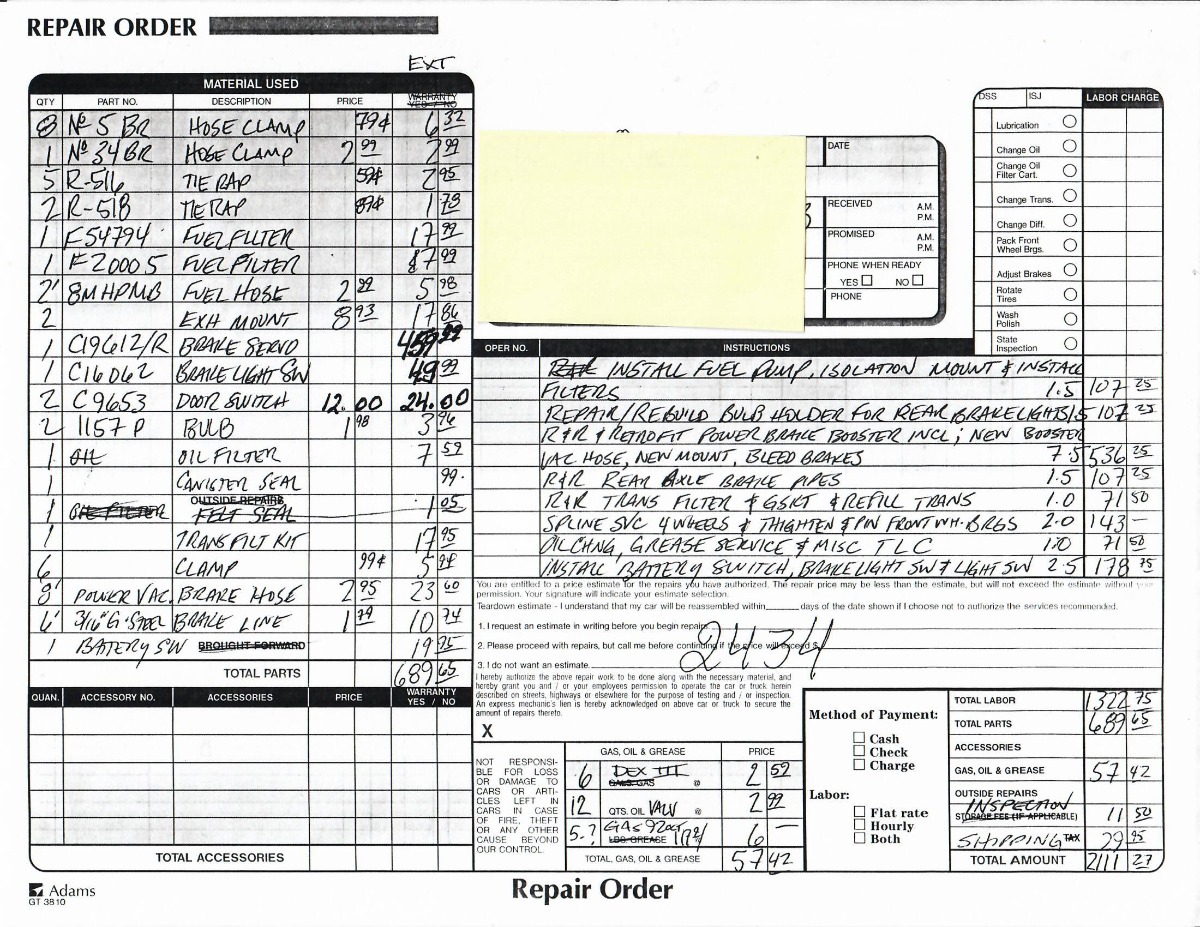 REPAIR ORDER
EXT
MATERIAL USED
QTY PART NO. DESCRIPTION PRICE WARRANTY YES / NO
8 No 5 BR HOSE CLAMP 79¢ 6 32
1 No 34 BR HOSE CLAMP 2 99 2 99
5 R-516 TIE RAP 59¢ 2 95
2 R-518 TIE RAP 89¢ 1 78
1 F54794 FUEL FILTER 17 99
1 F20005 FUEL FILTER 17 99
2' 8MHPMB FUEL HOSE 2 99 5 98
2 EXH MOUNT 8 93 17 86
1 C19612/R BRAKE SERVO 459 99
1 C16062 BRAKE LIGHT SW 49 99
2 C9653 DOOR SWITCH 12.00 24.00
2 1157 P BULB 1 98 3 96
1 OIL OIL FILTER 7 59
1 CANISTER SEAL 99.
OUTSIDE REPAIRS
1 OIL FILTER FELT SEAL 1 05
1 TRANS FILT KIT 17 95
6 CLAMP 99¢ 5 94
8' POWER VAC. BRAKE HOSE 2 95 23 60
6' 3/16" G-STEEL BRAKE LINE 1 79 10 74
1 BATTERY SW BROUGHT FORWARD 19 95
TOTAL PARTS 689 65
QUAN. ACCESSORY NO. ACCESSORIES PRICE WARRANTY YES / NO
TOTAL ACCESSORIES
DATE
RECEIVED A.M. P.M.
PROMISED A.M. P.M.
PHONE WHEN READY
YES NO
PHONE
DSS ISJ LABOR CHARGE
Lubrication
Change Oil
Change Oil Filter Cart.
Change Trans.
Change Diff.
Pack Front Wheel Brgs.
Adjust Brakes
Rotate Tires
Wash Polish
State Inspection
OPER NO. INSTRUCTIONS
R&R INSTALL FUEL PUMP, ISOLATION MOUNT & INSTALL
FILTERS 1.5 107 25
REPAIR/REBUILD BULB HOLDER FOR REAR BRAKELIGHTS 1.5 107 25
R&R & RETROFIT POWER BRAKE BOOSTER INCL; NEW BOOSTER
VAC HOSE, NEW MOUNT, BLEED BRAKES 7.5 536 25
R&R REAR AXLE BRAKE PIPES 1.5 107 25
R&R TRANS FILTER & GSKT & REFILL TRANS 1.0 71 50
SPLINE SVC 4 WHEELS & THIGHTEN & PIN FRONT WH. BRGS 2.0 143 —
OILCHNG, GREASE SERVICE & MISC TLC 1.0 71 50
INSTALL BATTERY SWITCH, BRAKELIGHT SW & LIGHT SW 2.5 178 75
You are entitled to a price estimate for the repairs you have authorized. The repair price may be less than the estimate, but will not exceed the estimate without your
permission. Your signature will indicate your estimate selection.
Teardown estimate - I understand that my car will be reassembled within____days of the date shown if I choose not to authorize the services recommended.
1. I request an estimate in writing before you begin repairs.
2. Please proceed with repairs, but call me before continuing if the price will exceed $
2434
3. I do not want an estimate.
I hereby authorize the above repair work to be done along with the necessary material, and
hereby grant you and / or your employees permission to operate the car or truck herein
described on streets, highways or elsewhere for the purpose of testing and / or inspection.
An express mechanic's lien is hereby acknowledged on above car or truck to secure the
amount of repairs thereto.
X
NOT RESPONSIBLE FOR LOSS OR DAMAGE TO CARS OR ARTICLES LEFT IN CARS IN CASE OF FIRE, THEFT OR ANY OTHER CAUSE BEYOND OUR CONTROL.
GAS, OIL & GREASE PRICE
6 DEX III GALS. GAS @ 2 59
12 QTS. OIL VALV @ 2 99
5.? GAS 92oct LBS. GREASE 6 —
TOTAL, GAS, OIL & GREASE 57 42
Method of Payment:
Cash
Check
Charge
Labor:
Flat rate
Hourly
Both
TOTAL LABOR 1322 75
TOTAL PARTS 689 65
ACCESSORIES
GAS, OIL & GREASE 57 42
OUTSIDE REPAIRS
INSPECTION
STORAGE FEE (IF APPLICABLE) 11 50
SHIPPING TAX 29 95
TOTAL AMOUNT 2111 27
Adams
GT 3810
Repair Order